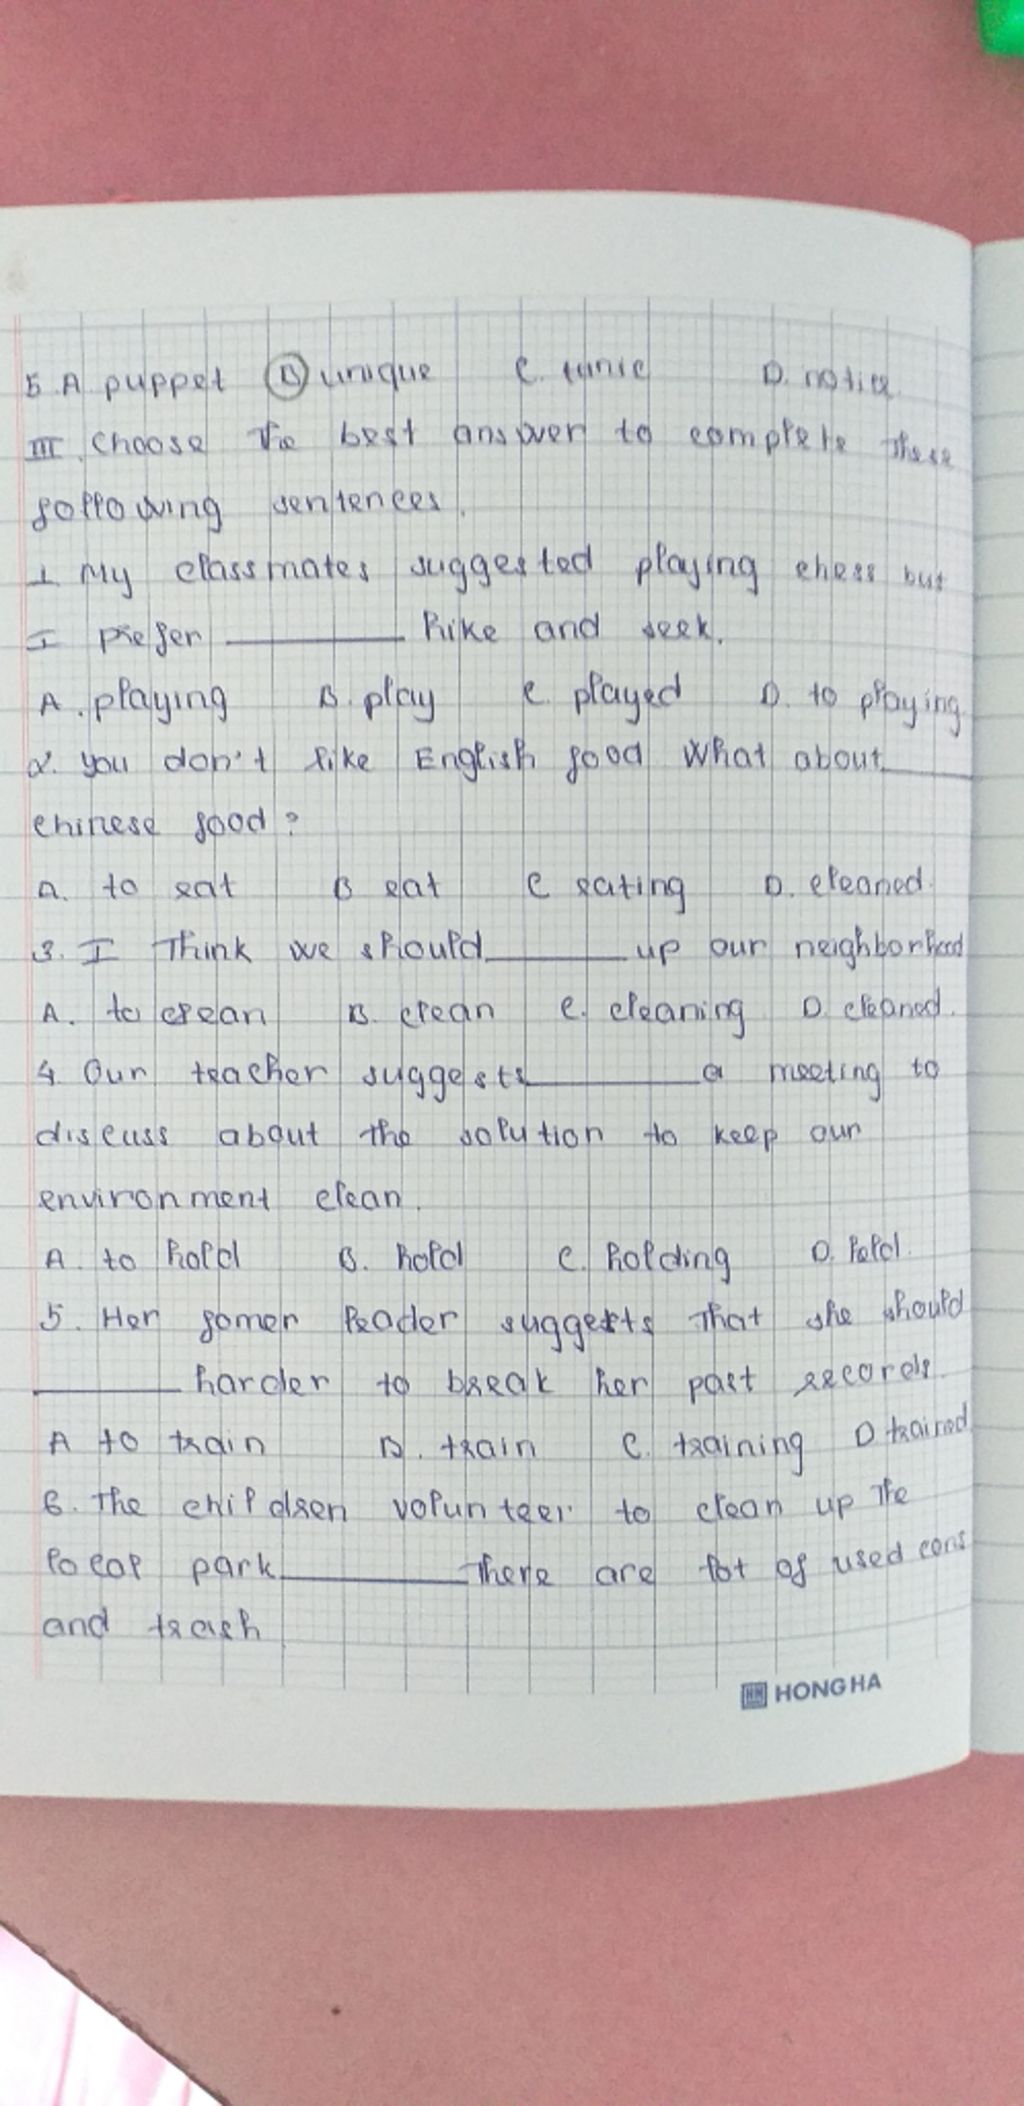 5. A puppet B unique C. tunic D. notice
III. Choose the best answer to complete these
following sentences.
1 My classmates suggested playing chess but
I prefer ________ hike and seek.
A. playing B. play C. played D. to playing
2. you don't like English food What about ________
chinese food?
a. to eat B eat C eating D. cleaned.
3. I Think we should ________ up our neighborhood
A. to clean B. clean C. cleaning D. cleaned.
4. Our teacher suggests ________ a meeting to
discuss about the solution to keep our
environment clean.
A. to hold B. hold C. holding D. held.
5. Her fomer leader suggests that she should
________ harder to break her past records.
A to train B. train C. training D trained
6. The children volunteer to clean up the
local park ________ There are lot of used cans
and trash
HONG HA